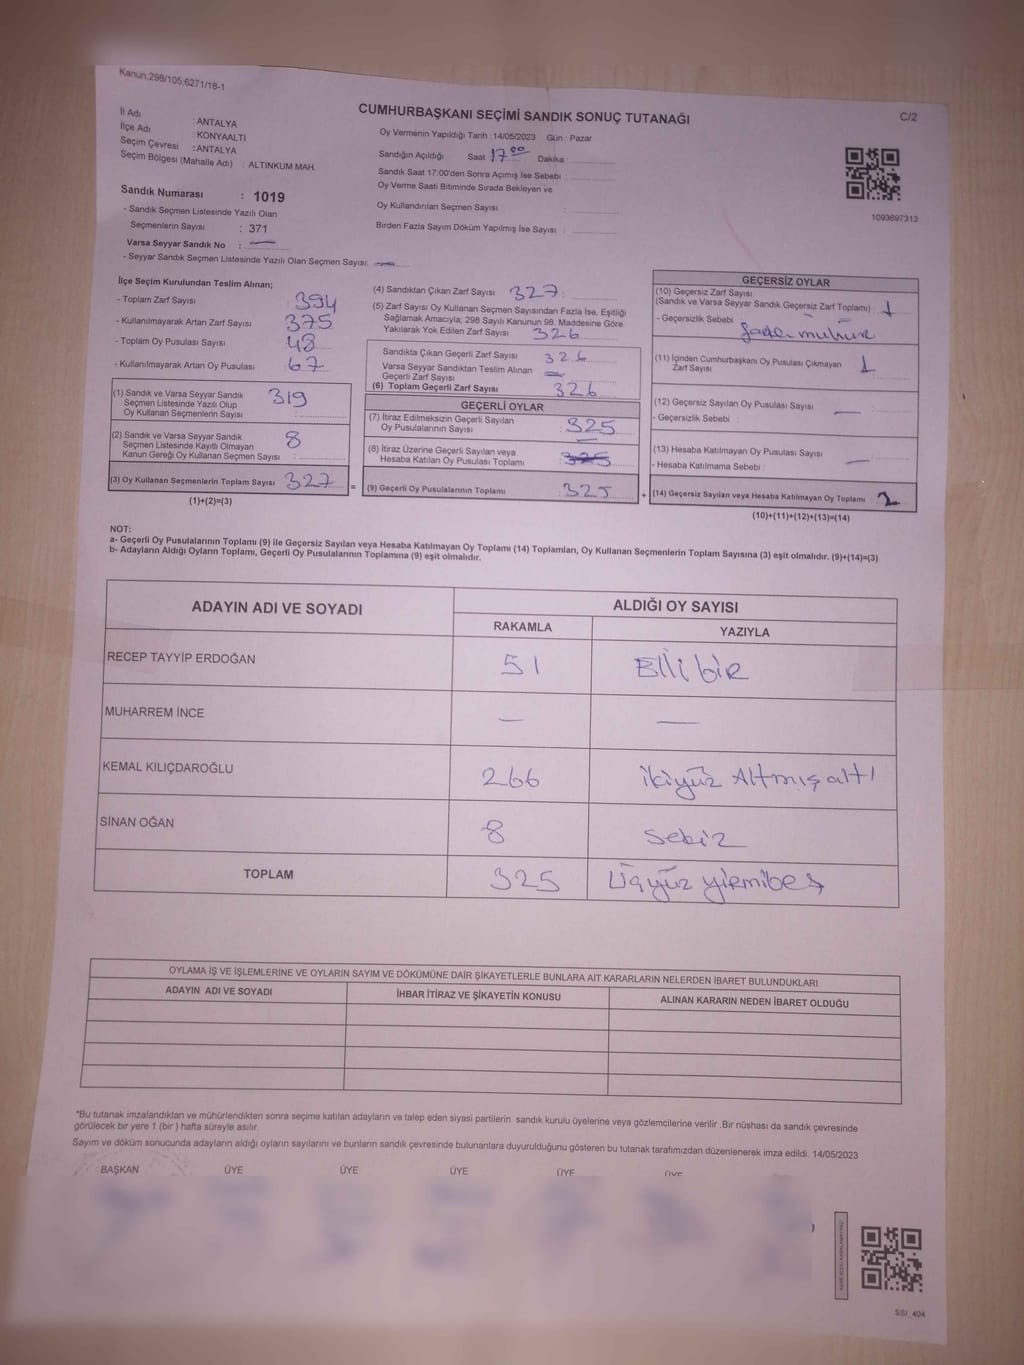 Kanun:298/105;6271/18-1
CUMHURBAŞKANI SEÇİMİ SANDIK SONUÇ TUTANAĞI
C/2
İl Adı : ANTALYA
İlçe Adı : KONYAALTI
Seçim Çevresi : ANTALYA
Seçim Bölgesi (Mahalle Adı) : ALTINKUM MAH.
Oy Vermenin Yapıldığı Tarih :14/05/2023 Gün : Pazar
Sandığın Açıldığı Saat 17 00 Dakika :
Sandık Saat 17:00'den Sonra Açımış İse Sebebi :
Oy Verme Saati Bitiminde Sırada Bekleyen ve
Oy Kullandırılan Seçmen Sayısı :
Birden Fazla Sayım Döküm Yapılmış İse Sayısı :
1093697313
Sandık Numarası : 1019
- Sandık Seçmen Listesinde Yazılı Olan
Seçmenlerin Sayısı : 371
Varsa Seyyar Sandık No : —
- Seyyar Sandık Seçmen Listesinde Yazılı Olan Seçmen Sayısı: —
İlçe Seçim Kurulundan Teslim Alınan;
- Toplam Zarf Sayısı 394
- Kullanılmayarak Artan Zarf Sayısı 375
- Toplam Oy Pusulası Sayısı 48
- Kullanılmayarak Artan Oy Pusulası 67
(1) Sandık ve Varsa Seyyar Sandık
Seçmen Listesinde Yazılı Olup
Oy Kullanan Seçmenlerin Sayısı 319
(2) Sandık ve Varsa Seyyar Sandık
Seçmen Listesinde Kayıtlı Olmayan
Kanun Gereği Oy Kullanan Seçmen Sayısı : 8
(3) Oy Kullanan Seçmenlerin Toplam Sayısı 327
(1)+(2)=(3)
(4) Sandıktan Çıkan Zarf Sayısı 327
(5) Zarf Sayısı Oy Kullanan Seçmen Sayısından Fazla İse, Eşitliği
Sağlamak Amacıyla; 298 Sayılı Kanunun 98. Maddesine Göre
Yakılarak Yok Edilen Zarf Sayısı 326
Sandıkta Çıkan Geçerli Zarf Sayısı 326
Varsa Seyyar Sandıktan Teslim Alınan
Geçerli Zarf Sayısı —
(6) Toplam Geçerli Zarf Sayısı 326
GEÇERLİ OYLAR
(7) İtiraz Edilmeksizin Geçerli Sayılan
Oy Pusulalarının Sayısı : 325
(8) İtiraz Üzerine Geçerli Sayılan veya
Hesaba Katılan Oy Pusulası Toplamı —
=
(9) Geçerli Oy Pusulalarının Toplamı 325
+
GEÇERSİZ OYLAR
(10) Geçersiz Zarf Sayısı
(Sandık ve Varsa Seyyar Sandık Geçersiz Zarf Toplamı) : 1
- Geçersizlik Sebebi : mühür
(11) İçinden Cumhurbaşkanı Oy Pusulası Çıkmayan
Zarf Sayısı 1
(12) Geçersiz Sayılan Oy Pusulası Sayısı —
- Geçersizlik Sebebi :
(13) Hesaba Katılmayan Oy Pusulası Sayısı —
- Hesaba Katılmama Sebebi :
(14) Geçersiz Sayılan veya Hesaba Katılmayan Oy Toplamı : 2
(10)+(11)+(12)+(13)=(14)
NOT:
a- Geçerli Oy Pusulalarının Toplamı (9) ile Geçersiz Sayılan veya Hesaba Katılmayan Oy Toplamı (14) Toplamları, Oy Kullanan Seçmenlerin Toplam Sayısına (3) eşit olmalıdır. (9)+(14)=(3)
b- Adayların Aldığı Oyların Toplamı, Geçerli Oy Pusulalarının Toplamına (9) eşit olmalıdır.
ADAYIN ADI VE SOYADI
ALDIĞI OY SAYISI
RAKAMLA YAZIYLA
RECEP TAYYİP ERDOĞAN 51 Ellibir
MUHARREM İNCE — —
KEMAL KILIÇDAROĞLU 266 ikiyüz Altmışaltı
SİNAN OĞAN 8 sekiz
TOPLAM 325 Üçyüz yirmibeş
OYLAMA İŞ VE İŞLEMLERİNE VE OYLARIN SAYIM VE DÖKÜMÜNE DAİR ŞİKAYETLERLE BUNLARA AİT KARARLARIN NELERDEN İBARET BULUNDUKLARI
ADAYIN ADI VE SOYADI İHBAR İTİRAZ VE ŞİKAYETİN KONUSU ALINAN KARARIN NEDEN İBARET OLDUĞU
*Bu tutanak imzalandıktan ve mühürlendikten sonra seçime katılan adayların ve talep eden siyasi partilerin sandık kurulu üyelerine veya gözlemcilerine verilir .Bir nüshası da sandık çevresinde
görülecek bir yere 1 (bir ) hafta süreyle asılır.
Sayım ve döküm sonucunda adayların aldığı oyların sayılarını ve bunların sandık çevresinde bulunanlara duyurulduğunu gösteren bu tutanak tarafımızdan düzenlenerek imza edildi. 14/05/2023
BAŞKAN ÜYE ÜYE ÜYE ÜYE ÜYE
SSI_404